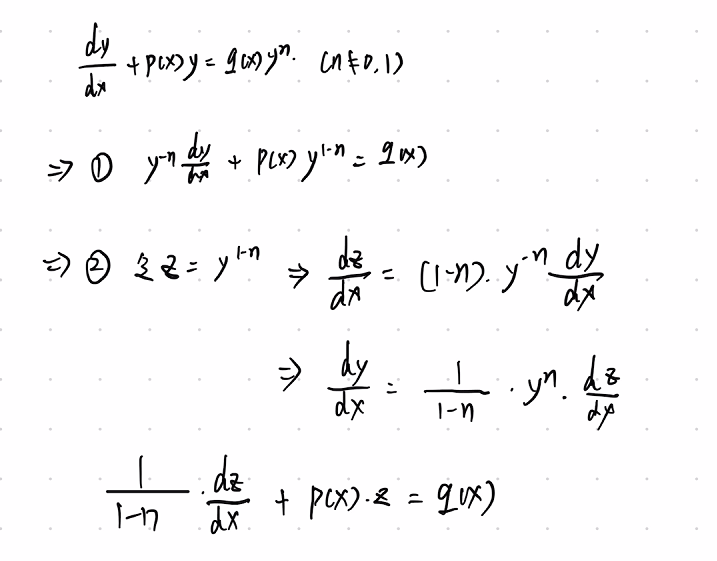 dy/dx + p(x)y = q(x)yⁿ. (n≠0,1)
⇒ ① y⁻ⁿ dy/dx + p(x) y¹⁻ⁿ = q(x)
⇒ ② 令 z = y¹⁻ⁿ ⇒ dz/dx = (1-n)· y⁻ⁿ dy/dx
⇒ dy/dx = 1/(1-n) · yⁿ · dz/dx
1/(1-n) · dz/dx + p(x)·z = q(x)